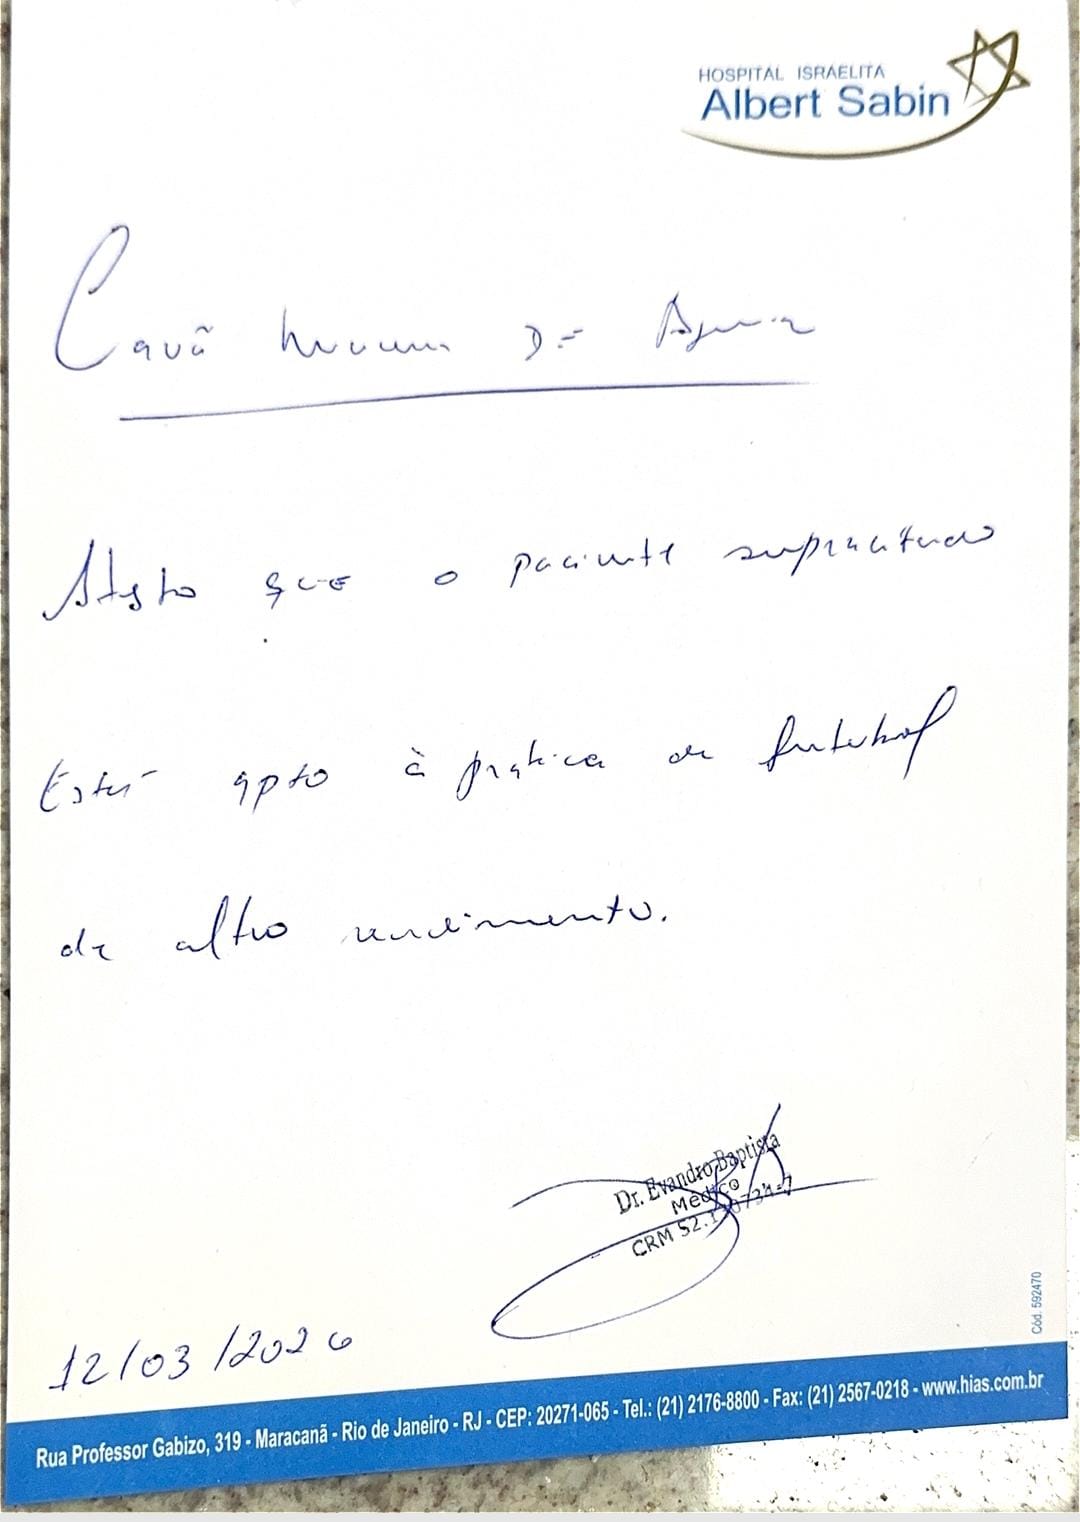 HOSPITAL ISRAELITA
Albert Sabin
Cauã de
Atesto que o paciente supracitado
Está apto à prática de futebol
de alto rendimento.
Dr. Evandro Baptista
Médico
CRM 52.
12/03/2026
Cód. 592470
Rua Professor Gabizo, 319 - Maracanã - Rio de Janeiro - RJ - CEP: 20271-065 - Tel.: (21) 2176-8800 - Fax: (21) 2567-0218 - www.hias.com.br